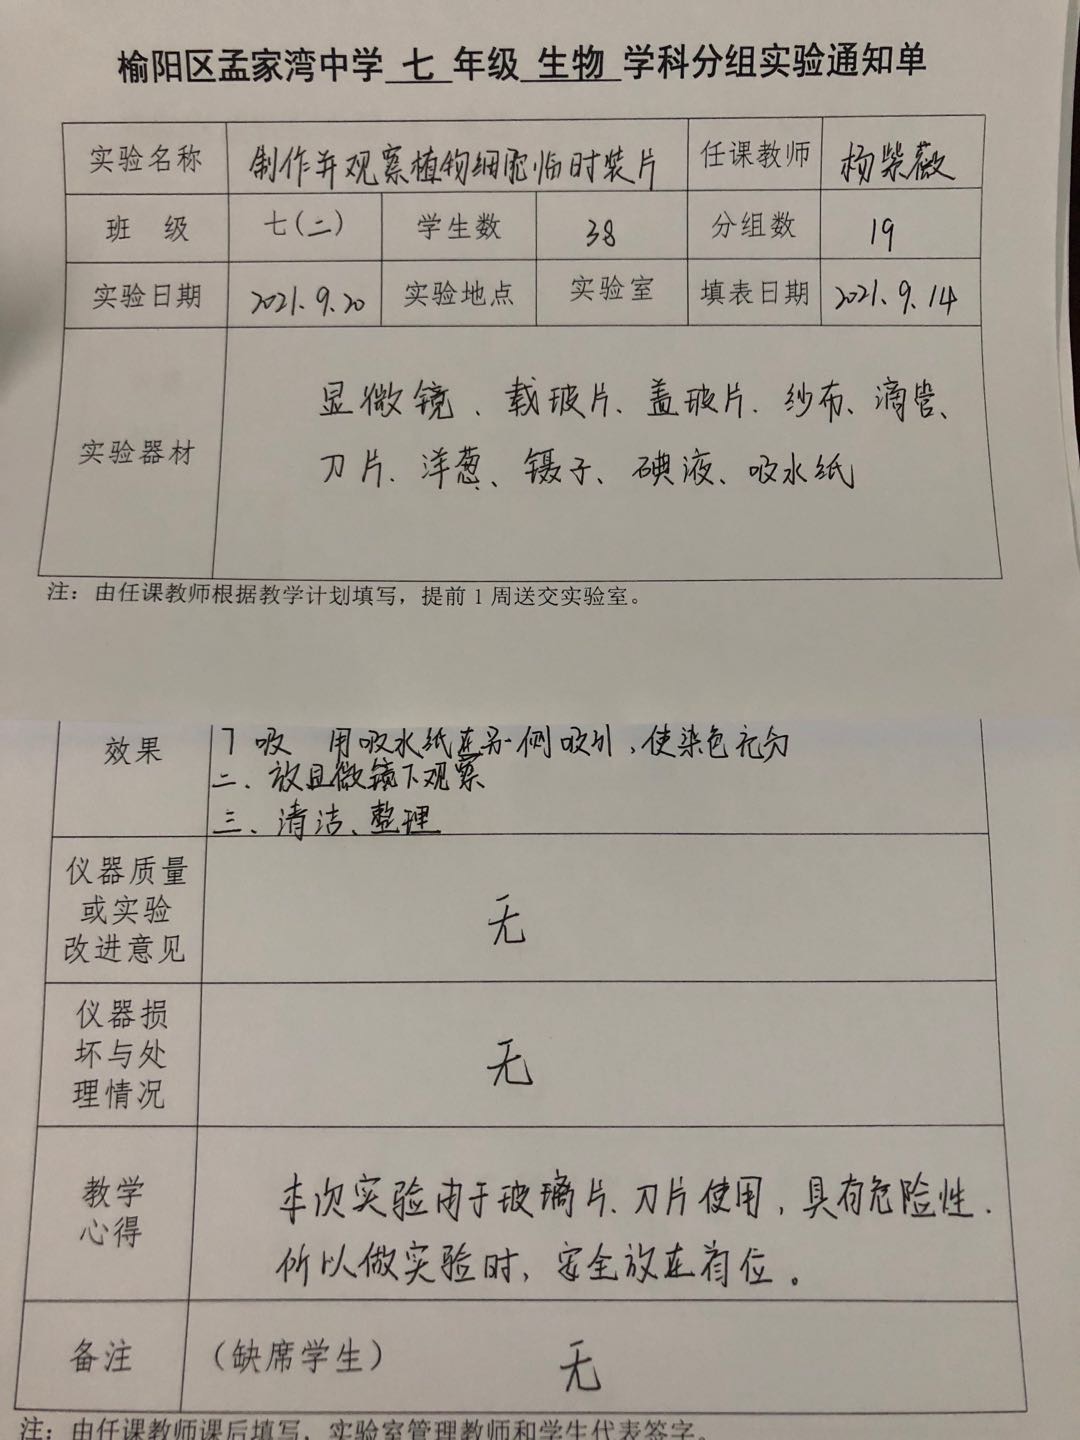 榆阳区孟家湾中学 七 年级 生物 学科分组实验通知单
实验名称 制作并观察植物细胞临时装片 任课教师 杨紫薇
班 级 七(二) 学生数 38 分组数 19
实验日期 2021.9.20 实验地点 实验室 填表日期 2021.9.14
实验器材
显微镜、载玻片、盖玻片、纱布、滴管、
刀片、洋葱、镊子、碘液、吸水纸
注：由任课教师根据教学计划填写，提前1周送交实验室。
效果
7 吸 用吸水纸在另一侧吸引，使染色充分
二、放显微镜下观察
三、清洁、整理
仪器质量
或实验
改进意见
无
仪器损
坏与处
理情况
无
教学
心得
本次实验由于玻璃片、刀片使用，具有危险性，
所以做实验时，安全放在首位。
备注 （缺席学生） 无
注：由任课教师课后填写，实验室管理教师和学生代表签字。